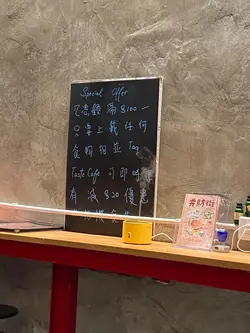 Special Offer
凡惠顧滿$100一
只要上載任何
食物相並Tag
Taste Cafe 可即時
有減$20優惠